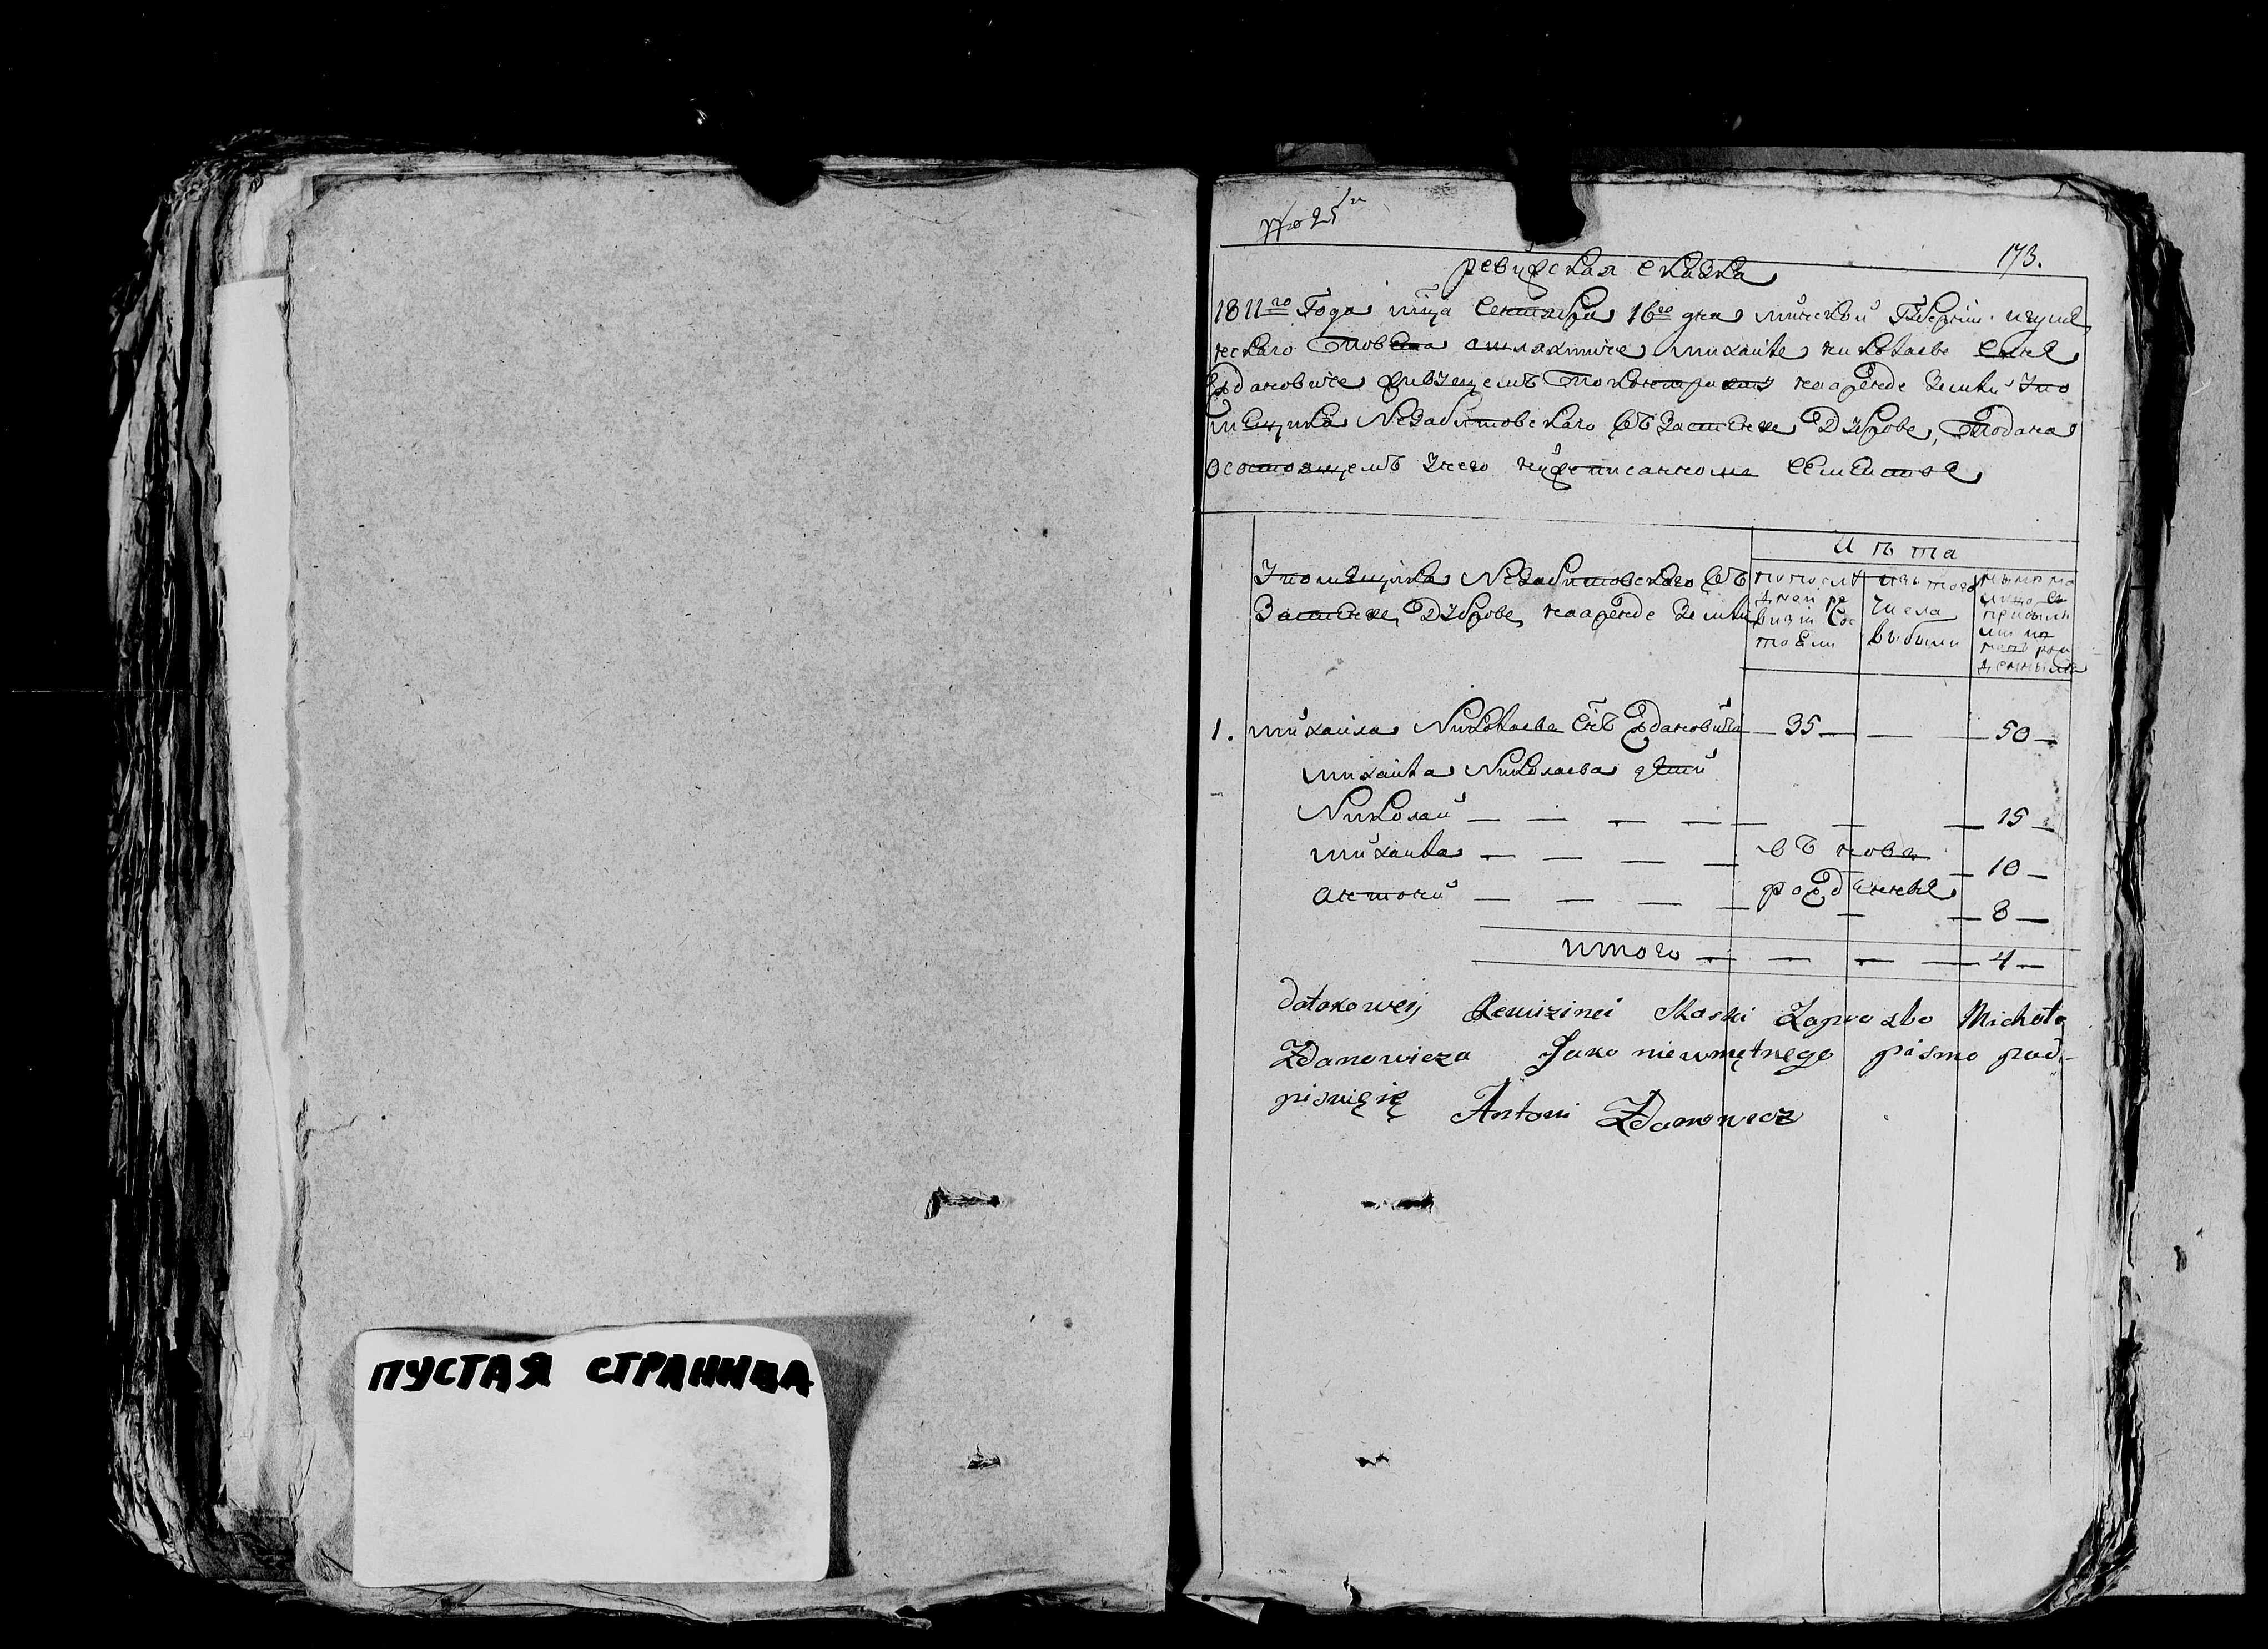 ПУСТАЯ СТРАНИЦА
№ 25
173.
ревизская сказка
1811го Года мца Сентября 16го дня минской Губернии игумен
скаго Повета о шляхтиче михайле николаеве сыне
Ждановиче живущемъ По контракту на аренде земли У по
мещика Незабитовского въ Застенке Дуброве, Подана
о состоящемъ у него нижеписанном семействе
Лѣта
У помещика Незабитовского въ
Застенке Дуброве, на аренде земли
по последней ревизии состояли
изъ того числа выбыли
ныне на лицо
1. михайла Николаева снъ Ждановича — 35 — — — 50 —
михайла Николаева дети
Николай — — — — — — — 15 —
михайла — — — — въ новь — 10 —
антоний — — — — рожденные — 8 —
итого — — — — 4 —
do takowey Rewizinei Skaski Za proźbo Michała
Zdanowicza Jako nieumętnego pismo pod-
pisuię się Antoni Zdanowicz